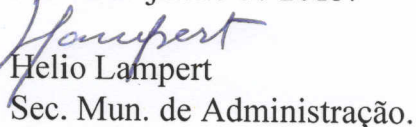 Lampert
Helio Lampert
Sec. Mun. de Administração.